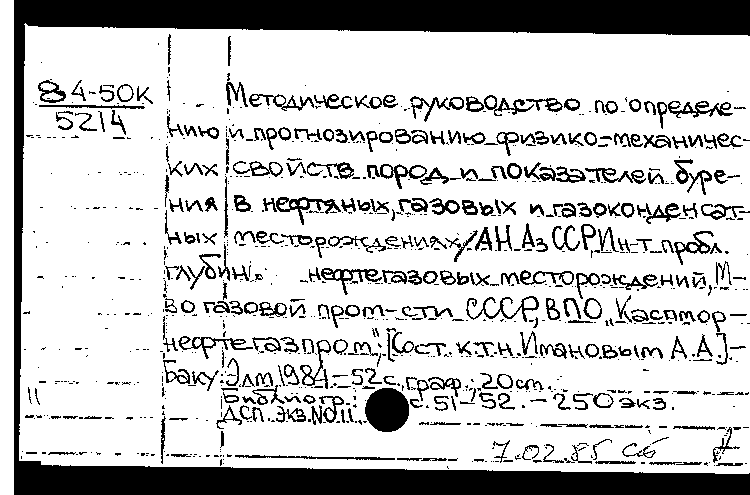 84-50К
5214
Методическое руководство по определе-
нию и прогнозированию физико-механичес-
ких свойств пород и показателей буре-
ния в нефтяных, газовых и газоконденсат-
ных месторождениях/АН АзССР, Ин-т пробл.
глубин. нефтегазовых месторождений, М-
во газовой пром-сти СССР, ВПО „Каспмор-
нефтегазпром"; [Сост. к.т.н. Имановым А.А.]-
Баку: Элм, 1984.-52с., граф.; 20см.
11
Библиогр.: с. 51-52. - 250 экз.
ДСП. Экз. №11.
7.02.85 Сб